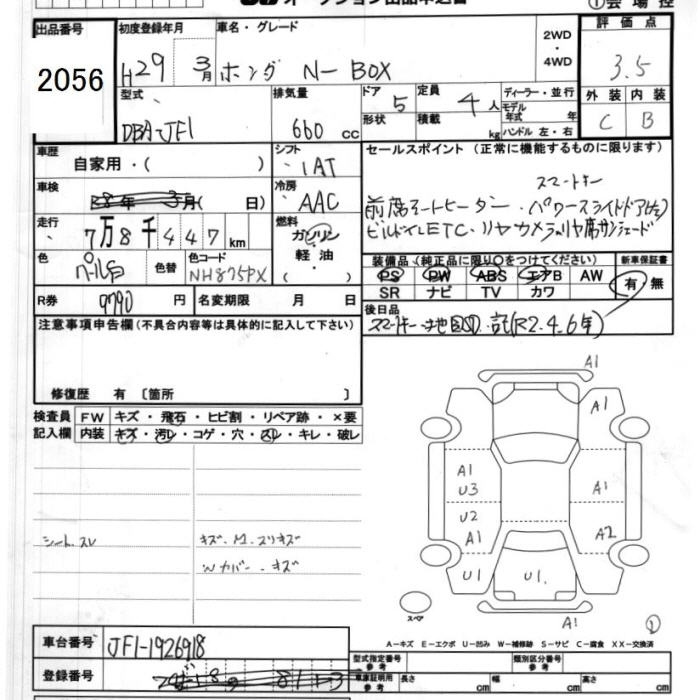 オークション出品申込書 ①会場控
出品番号 初度登録年月 車名・グレード 2WD ・ 4WD 評価点
2056 H29 3月 ホンダ N-BOX 3.5
型式 排気量 ドア 5 定員 4人 ディーラー・並行 外装 内装
DBA-JF1 660 cc 形状 積載 kg モデル年式 年 ハンドル 左・右 C B
車歴 自家用・( ) シフト IAT セールスポイント (正常に機能するものに限ります)
車検 R8年 3月( 日) 冷房 AAC スマートキー
走行 7万8千447km 燃料 ガソリン・軽油・( ) 前席シートヒーター・パワースライドドア(左)
ビルトインETC・リヤカメラ・リヤ席サンシェード
色 パール白 色替 色コード NH875PX 装備品 (純正品に限り○をつけてください) 新車保証書
PS PW ABS エアB AW 有・無
SR ナビ TV カワ
R券 9790 円 名変期限 月 日 後日品
スマートキー・地図SD・記(R2.4.6年)
注意事項申告欄 (不具合内容等は具体的に記入して下さい)
修復歴 有 〔箇所 〕
検査員記入欄 FW キズ・飛石・ヒビ割・リペア跡・×要
内装 キズ・汚レ・コゲ・穴・スレ・キレ・破レ
シートスレ キズ・M・スリキズ
Wカバー・キズ
A1
A1
A1 U3 A1
U2 A1 A2
U1 U1
A1
スペア ②
A-キズ E-エクボ U-凹み W-補修跡 S-サビ C-腐食 XX-交換済
車台番号 JF1-1926918
登録番号
型式指定番号 参考 類別区分番号 参考
車庫証明用 参考 長さ cm 幅 cm 高さ cm